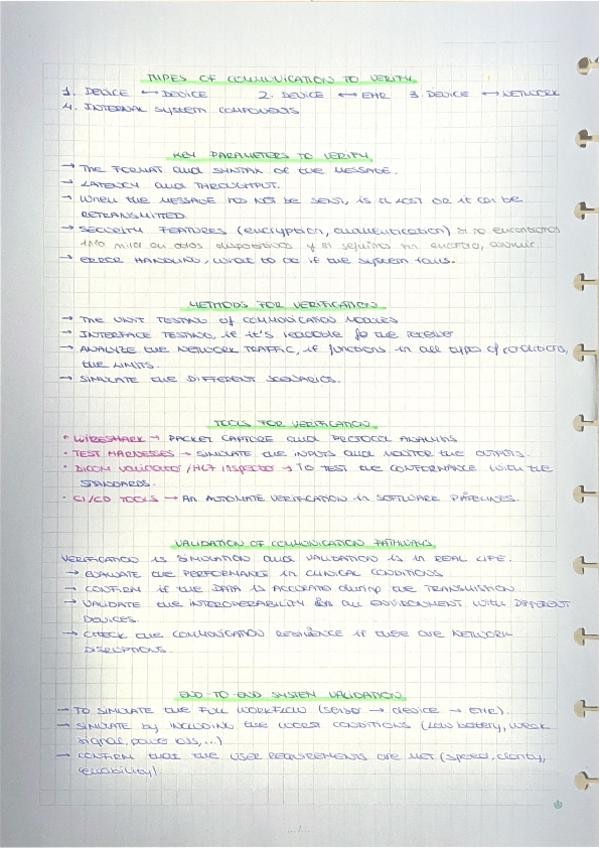 TYPES OF COMMUNICATION TO VERIFY
1. DEVICE ↔ DEVICE 2. DEVICE ↔ EHR 3. DEVICE ↔ NETWORK
4. INTERNAL SYSTEM COMPONENTS
KEY PARAMETERS TO VERIFY
→ THE FORMAT and SYNTAX OF the MESSAGE.
→ LATENCY and THROUGHPUT.
→ WHEN the MESSAGE NOT BE SENT, is it LOST OR it can be
RETRANSMITTED
→ SECURITY FEATURES (encryption, authentication) si no encontramos
info mirar en otros dispositivos y si seguimos sin
→ ERROR HANDLING, what to do if the system fails.
METHODS FOR VERIFICATION
→ THE UNIT TESTING of COMMUNICATION MODULES
→ INTERFACE TESTING, if it's readable for the receiver
→ ANALYZE the NETWORK TRAFFIC, if functions in all types of conditions,
the LIMITS.
→ SIMULATE the DIFFERENT SCENARIOS.
TOOLS FOR VERIFICATION
• WIRESHARK → PACKET CAPTURE and PROTOCOL ANALYSIS
• TEST HARNESSES → SIMULATE the INPUTS and MONITOR the OUTPUTS.
• DICOM validator / HL7 inspector → TO TEST the CONFORMANCE WITH the
STANDARDS.
• CI/CD TOOLS → AN AUTOMATE VERIFICATION in SOFTWARE PIPELINES.
VALIDATION OF COMMUNICATION PATHWAYS
VERIFICATION is SIMULATION and VALIDATION is in REAL LIFE
→ EVALUATE the PERFORMANCE in CLINICAL CONDITIONS
→ CONFIRM if the DATA is ACCURATE during the TRANSMISTION
→ VALIDATE the INTEROPERABILITY an ENVIRONMENT WITH DIFFERENT
DEVICES.
→ CHECK the COMMUNICATION RESILIENCE if there are NETWORK
DISRUPTIONS.
END TO END SYSTEM VALIDATION
→ TO SIMULATE the FULL WORKFLOW (sensor → device → EHR).
→ SIMULATE by INCLUDING the WORST CONDITIONS (low battery, weak
signal, power loss, ...)
→ CONFIRM that the USER REQUIREMENTS are MET (speed, clarity,
reliability)